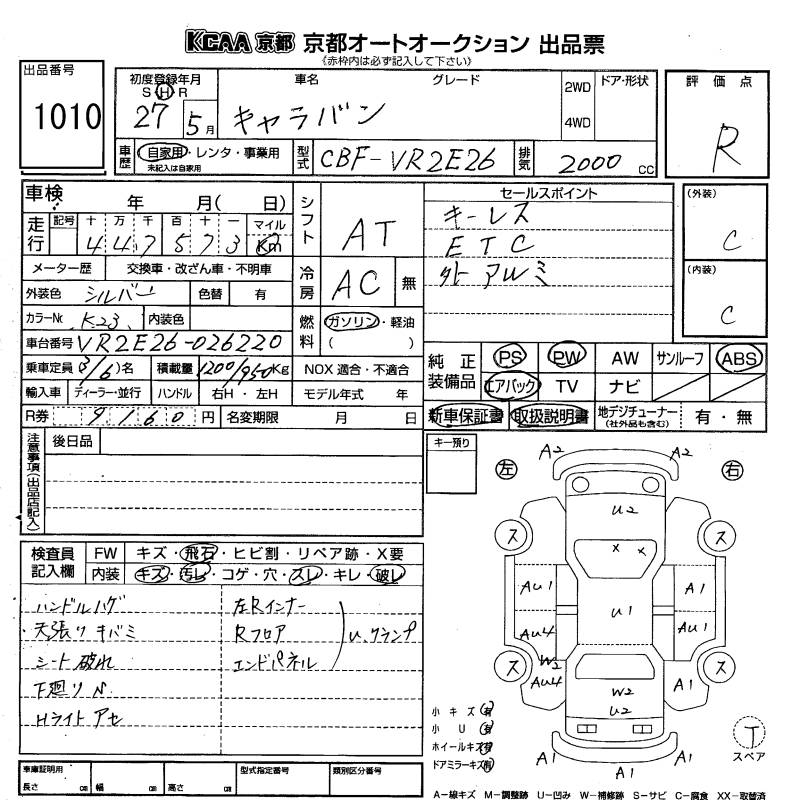 KCAA 京都 京都オートオークション 出品票
《赤枠内は必ず記入して下さい》
出品番号
1010
初度登録年月
S H R
27 5月
車名
グレード
キャラバン
2WD
4WD
ドア・形状
評価点
R
車歴
自家用・レンタ・事業用
未記入は自家用
型式
CBF-VR2E26
排気
2000 cc
車検 年 月( 日)
走行
記号 十 万 千 百 十 一 マイル
4 4 7 5 7 3 Km
メーター歴 交換車・改ざん車・不明車
外装色 シルバー 色替 有
カラーNo. K23 内装色
車台番号 VR2E26-026220
乗車定員 3/6名 積載量 1200/950Kg
輸入車 ディーラー・並行 ハンドル 右H・左H モデル年式 年
R券 9160円 名変期限 月 日
シフト AT
冷房 AC 無
燃料 ガソリン・軽油
( )
NOX 適合・不適合
セールスポイント
キーレス
ETC
外アルミ
(外装)
C
(内装)
C
純正装備品
PS PW AW サンルーフ ABS
エアバック TV ナビ
新車保証書 取扱説明書 地デジチューナー 有・無
(社外品も含む)
注意事項(出品店記入)
後日品
キー預り
検査員記入欄
FW キズ・飛石・ヒビ割・リペア跡・X要
内装 キズ・汚レ・コゲ・穴・スレ・キレ・破レ
ハンドルハゲ
天張りキバミ
シート破れ
下廻りN
Hライトアセ
左Rインナー
Rフロア
エンドパネル
U、クランプ
左 右
A2 A2
U2
ス ス
X X
AU1 A1
U1
AU4 AU1
ス ス
W2
AU4 A1
W2
U2
A1 A1
A1
小キズ 有
小U 有
ホイールキズ 有
ドアミラーキズ 有
T
スペア
車庫証明用
長さ cm 幅 cm 高さ cm
型式指定番号
類別区分番号
A-線キズ M-調整跡 U-凹み W-補修跡 S-サビ C-腐食 XX-取替済